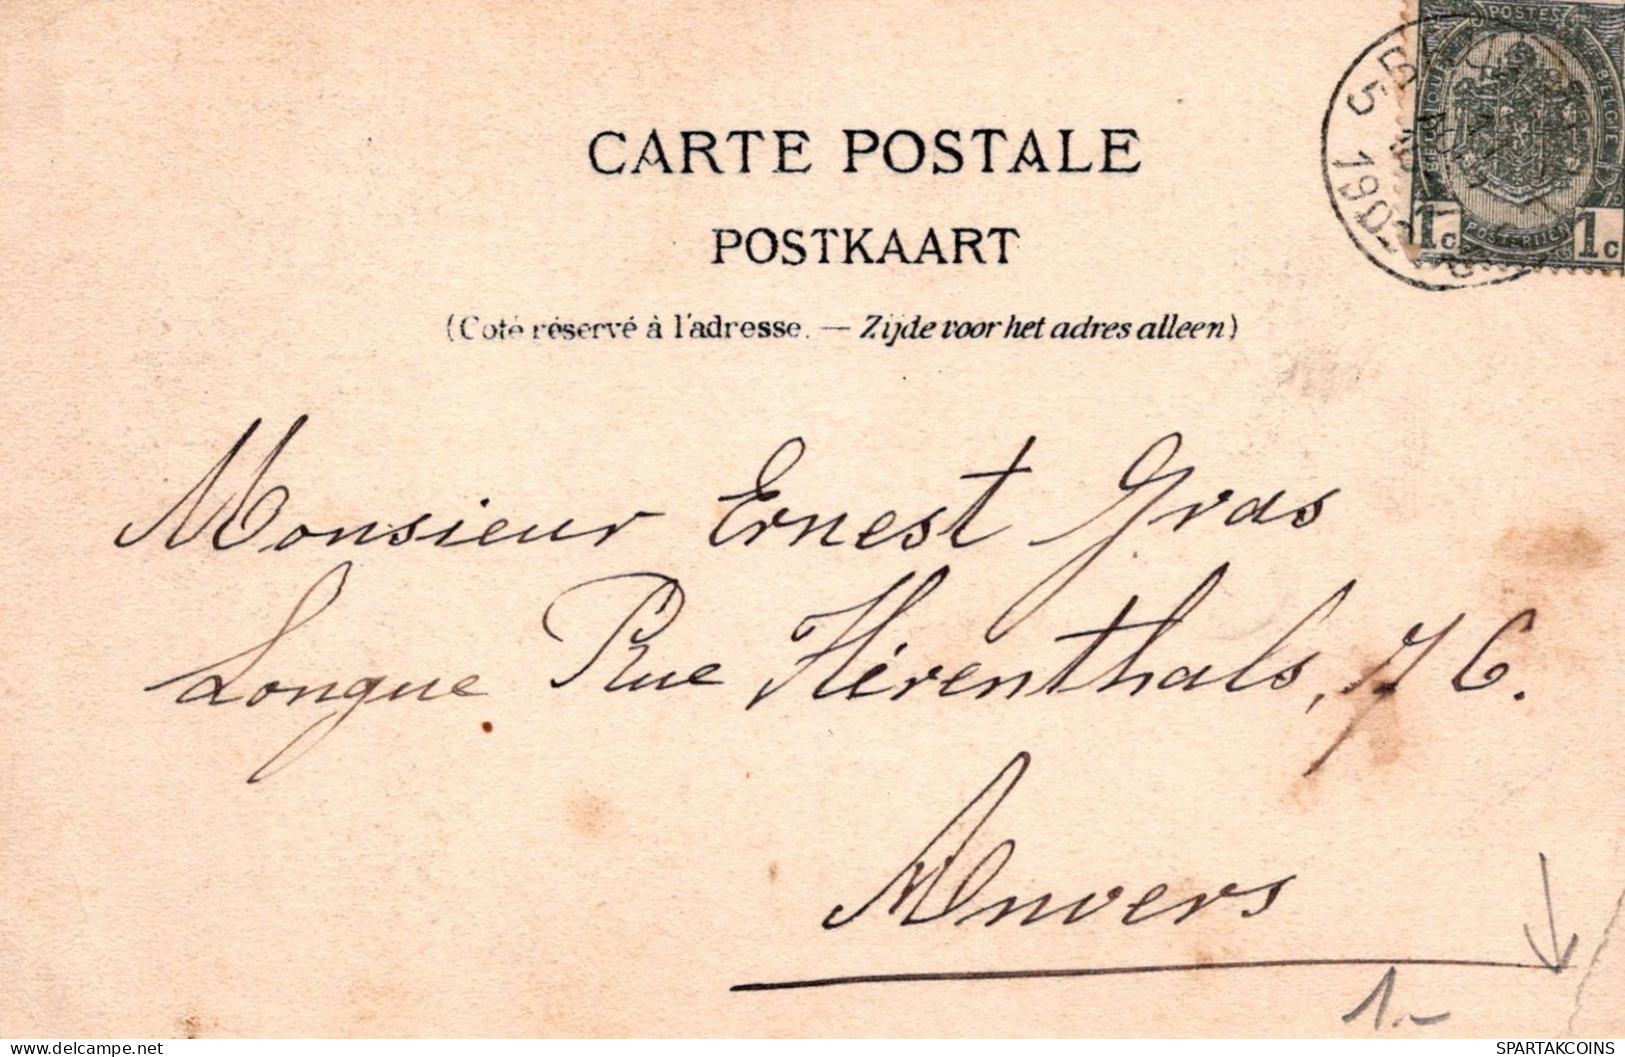 POSTES
BELGIQUE
1c 1c
POSTERIJEN
5
190
CARTE POSTALE
POSTKAART
(Coté réservé à l'adresse. — Zijde voor het adres alleen)
Monsieur Ernest Gras
Longue Rue Hérenthals, 76.
Anvers
1.-
SPARTAKCOINS